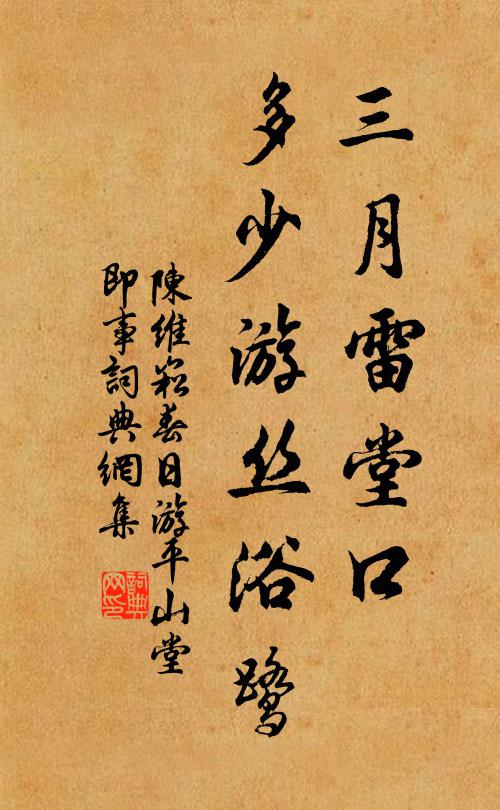 三月雷堂口
多少游丝浴鹭
陳维崧春日游平山堂
即事詞典網集
詞典网印